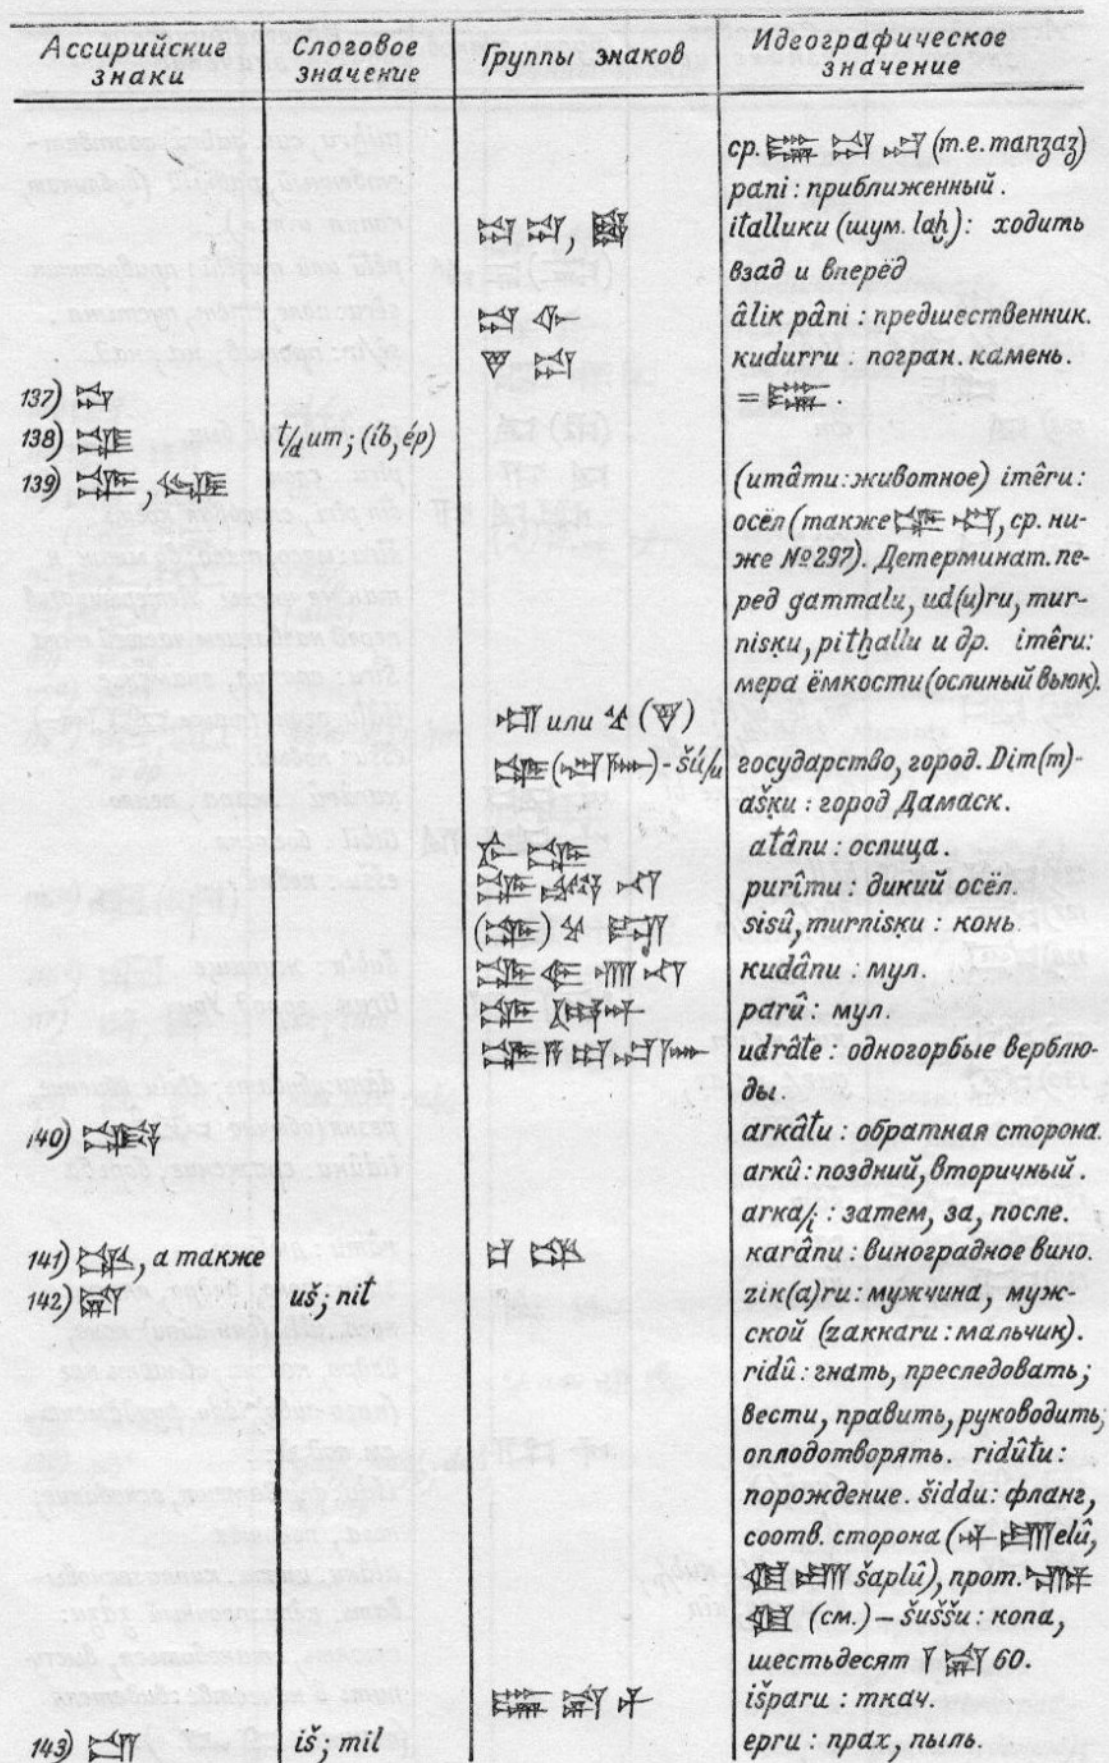 Ассирийские знаки Слоговое значение Группы знаков Идеографическое значение
ср. (т.е. manzaz)
pani : приближенный.
, italluku (шум. laḫ): ходить
взад и вперёд
âlik pâni : предшественник.
kudurru : погран. камень.
137) = .
138) t/d um; (íb, ép)
139) , (umâmu: животное) imêru:
осёл (также , ср. ни-
же №297). Детерминат. пе-
ред gammalu, ud(u)ru, mur-
nisḳu, pitḫallu и др. imêru:
мера ёмкости (ослиный вьюк).
или ( )
( )- šú/u государство, город. Dim(m)-
ašḳu : город Дамаск.
atânu : ослица.
purîmu : дикий осёл.
( ) sisû, murnisḳu : конь.
kudânu : мул.
parû : мул.
udrâte : одногорбые верблю-
ды.
140) arkâtu : обратная сторона.
arkû : поздний, вторичный.
arka/i : затем, за, после.
141) , а также karânu : виноградное вино.
142) uš; nit zik(a)ru : мужчина, муж-
ской (zakkaru : мальчик).
ridû : гнать, преследовать;
вести, править, руководить;
оплодотворять. ridûtu :
порождение. šiddu: фланг,
соотв. сторона ( elû,
šaplû), прот.
(см.) – šuššu : копа,
шестьдесят 60.
išparu : ткач.
143) iš; mil epru : прах, пыль.